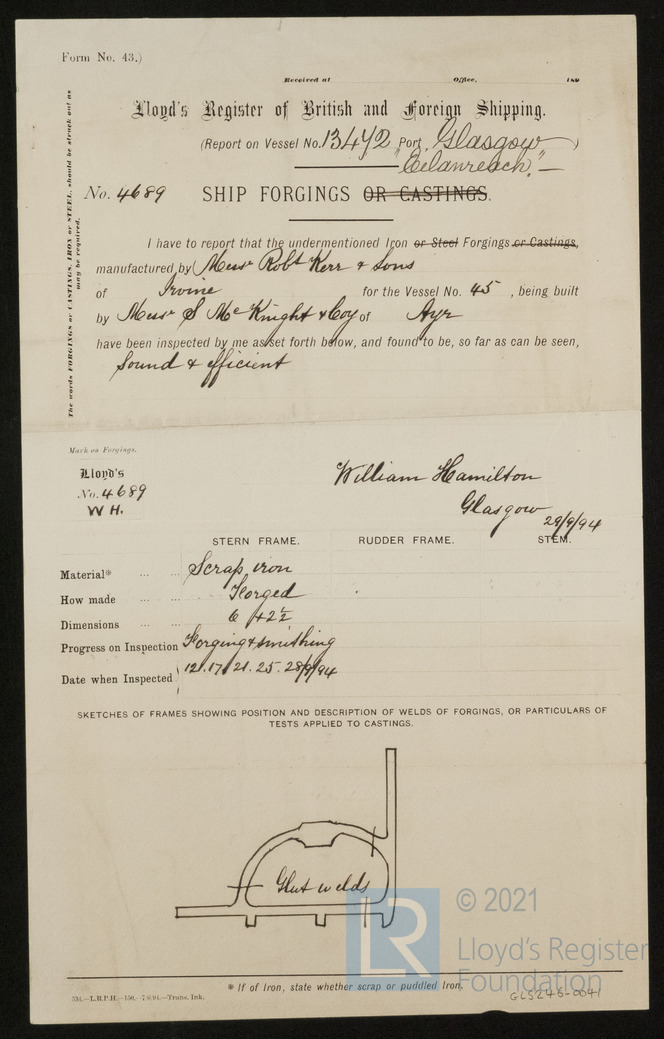 Form No. 43.)
Received at Office, 189
Lloyd's Register of British and Foreign Shipping.
(Report on Vessel No. 13472 Port Glasgow)
"Eilanreach."
No. 4689 SHIP FORGINGS OR CASTINGS.
The words FORGINGS or CASTINGS, IRON or STEEL, should be struck out as
may be required.
I have to report that the undermentioned Iron or Steel Forgings or Castings,
manufactured by Messrs Robt Kerr & Sons
of Irvine for the Vessel No. 45, being built
by Messrs S McKnight & Coy of Ayr
have been inspected by me as set forth below, and found to be, so far as can be seen,
Sound & efficient
Mark on Forgings.
Lloyd's
No. 4689
W H.
William Hamilton
Glasgow
29/9/94
STERN FRAME. RUDDER FRAME. STEM.
Material* Scrap iron
How made Forged
Dimensions 6 + 2½
Progress on Inspection Forging & smithing
Date when Inspected 12. 17. 21. 25. 28/9/94
SKETCHES OF FRAMES SHOWING POSITION AND DESCRIPTION OF WELDS OF FORGINGS, OR PARTICULARS OF
TESTS APPLIED TO CASTINGS.
Glut welds
LR
© 2021
Lloyd's Register
Foundation
* If of Iron, state whether scrap or puddled Iron.
GLS246-0041